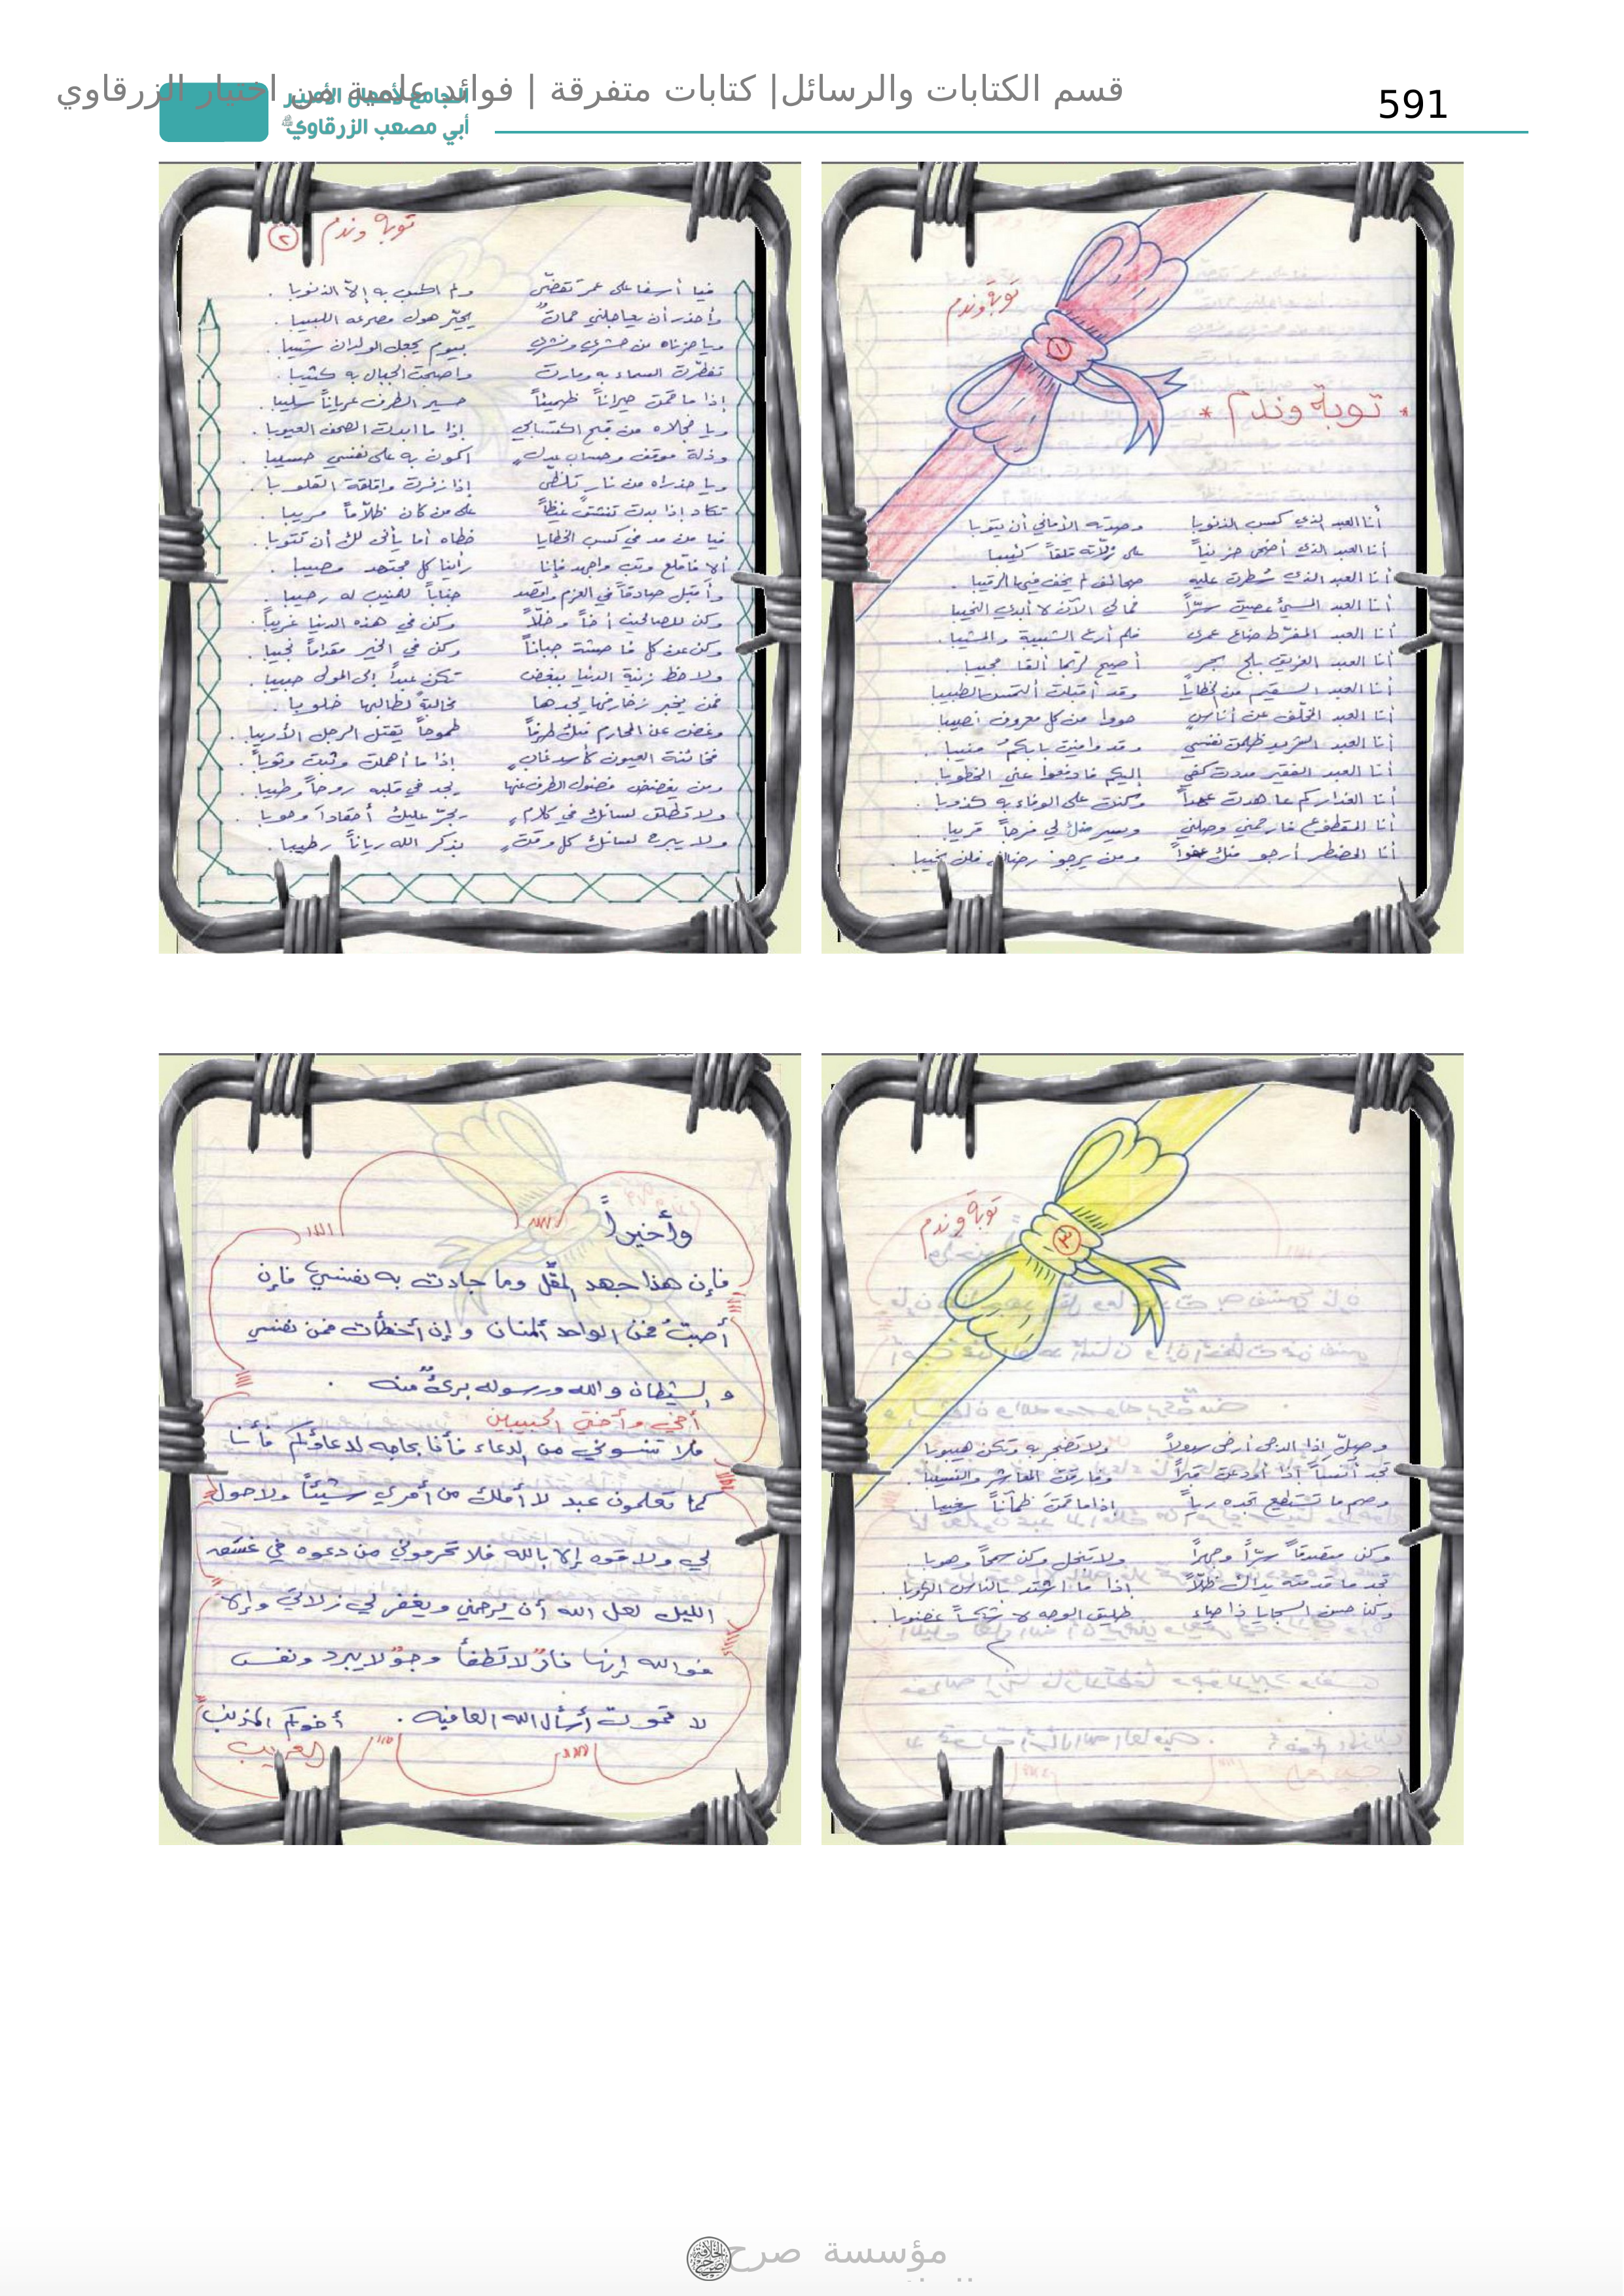 قسم الكتابات والرسائل| كتابات متفرقة | فوائد علمية من اختيار الزرقاوي
591
الجامع لأعمال الأمير
أبي مصعب الزرقاوي
توبة وندم
١
* توبة وندم *
أنا العبد الذي كسب الذنوبا وصدته الأماني أن يتوبا
أنا العبد الذي أضحى حزيناً على زلاته قلقاً كئيبا
أنا العبد الذي سُطرت عليه صحائف لم يخف فيها الرقيبا
أنا العبد المسيئ عصيت سرّاً فمالي الآن لا أبدي النحيبا
أنا العبد المفرّط ضاع عمري فلم أرع الشبيبة والمشيبا
أنا العبد الغريق بلج بحر أصيح لربما ألقا مجيبا
أنا العبد السقيم من الخطايا وقد أقبلت ألتمس الطبيبا
أنا العبد المخلّف عن أناسٍ حووا من كل معروف نصيبا
أنا العبد الشريد ظلمت نفسي وقد وافيت بابكم منيبا
أنا العبد الفقير مددت كفي إليكم فادفعوا عني الخطوبا
أنا الغدار كم عاهدت عهداً وكنت على الوفاء به كذوبا
أنا المقطوع فارحمني وصلني ويسر منك لي فرجاً قريبا
أنا المضطر أرجو منك عفواً ومن يرجو رضاك فلن يخيبا
توبة وندم ٢
فيا أسفا على عمر تقضّى ولم اكسب به إلّا الذنوبا .
وأحذر أن يعاجلني مماتٌ يحيّر هول مصرعه اللبيبا .
ويا حزناه من حشري ونشري بيوم يجعل الولدان شيبا .
تفطّرت السماء به ومارت واصبحت الجبال به كثيبا .
إذا ما قمت حيراناً ظميئاً حسير الطرف عرياناً سليبا .
ويا خجلاه من قبح اكتسابي إذا ما ابدت الصحف العيوبا .
وذلة موقف وحساب عدلٍ اكون به على نفسي حسيبا .
ويا حذراه من نارٍ تلظّى إذا زفرت واقلقة القلوبا .
تكاد إذا بدت تنشق غيظاً على من كان ظلّاماً مريبا .
فيا من مد في كسب الخطايا خطاه أما يأنى لك أن تتوبا .
ألا فاقلع وتب واجهد فإنا رأينا كل مجتهد مصيبا .
وأقبل صادقاً في العزم واقصد جناباً للمنيب له رحيبا .
وكن للصالحين أخاً وخلّاً وكن في هذه الدنيا غريباً .
وكن عن كل فاحشة جباناً وكن في الخير مقداماً نجيبا .
ولاحظ زينة الدنيا ببغض تكن عبداً إلى المولى حبيبا .
فمن يخبر زخارفها يجدها مخالبةً لطالبها خلوبا .
وغض عن المحارم منك طرفاً طموحاً يفتن الرجل الأريبا .
فخائنة العيون كأسد غابٍ إذا ما أهملت وثبت وثوباً .
ومن يغضض فضول الطرف عنها يجد في قلبه روحاً وطيبا .
ولا تطلق لسانك في كلامٍ يجرّ عليك أحقاداً وحوبا .
ولا يبرح لسانك كل وقتٍ بذكر الله رياناً رطيبا .
توبة وندم
٣
وصلّ إذا الدجى أرخى سدولاً ولا تضجر به وتكن هيوبا
تجد أنساً إذا أودعت قبراً وفارقت المعاشر والنسيبا .
وصم ما تستطيع تجده رياً إذا ما قمت ظمآناً سغيبا .
وكن متصدقاً سرّاً وجهراً ولا تبخل وكن سمحاً وهوبا .
تجد ما قدمته يداك ظلّاً إذا ما اشتد بالناس الكروبا .
وكن حسن السجايا ذا حياء طليق الوجه لا شكساً غضوبا .
وأخيراً
فإن هذا جهد المقّل وما جادت به نفسي فإن
أصبتُ فمن الواحد المنان وإن أخطأت فمن نفسي
والشيطان والله ورسوله بريءٌ منه .
أخي وأختي الحبيبين
فلا تنسوني من الدعاء فأنا بحاجه لدعاؤكم فأنا
كما تعلمون عبد لا أملك من أمري شيئاً ولا حول
لي ولا قوه إلا بالله فلا تحرموني من دعوه في غسق
الليل لعل الله أن يرحمني ويغفر لي زلاتي وإلا
فوالله إنها نارٌ لا تطفأ وجوٌ لا يبرد ونفس
لا تموت أسأل الله العافيه . أخوكم المذنب
الغريب
مؤسسة صرح